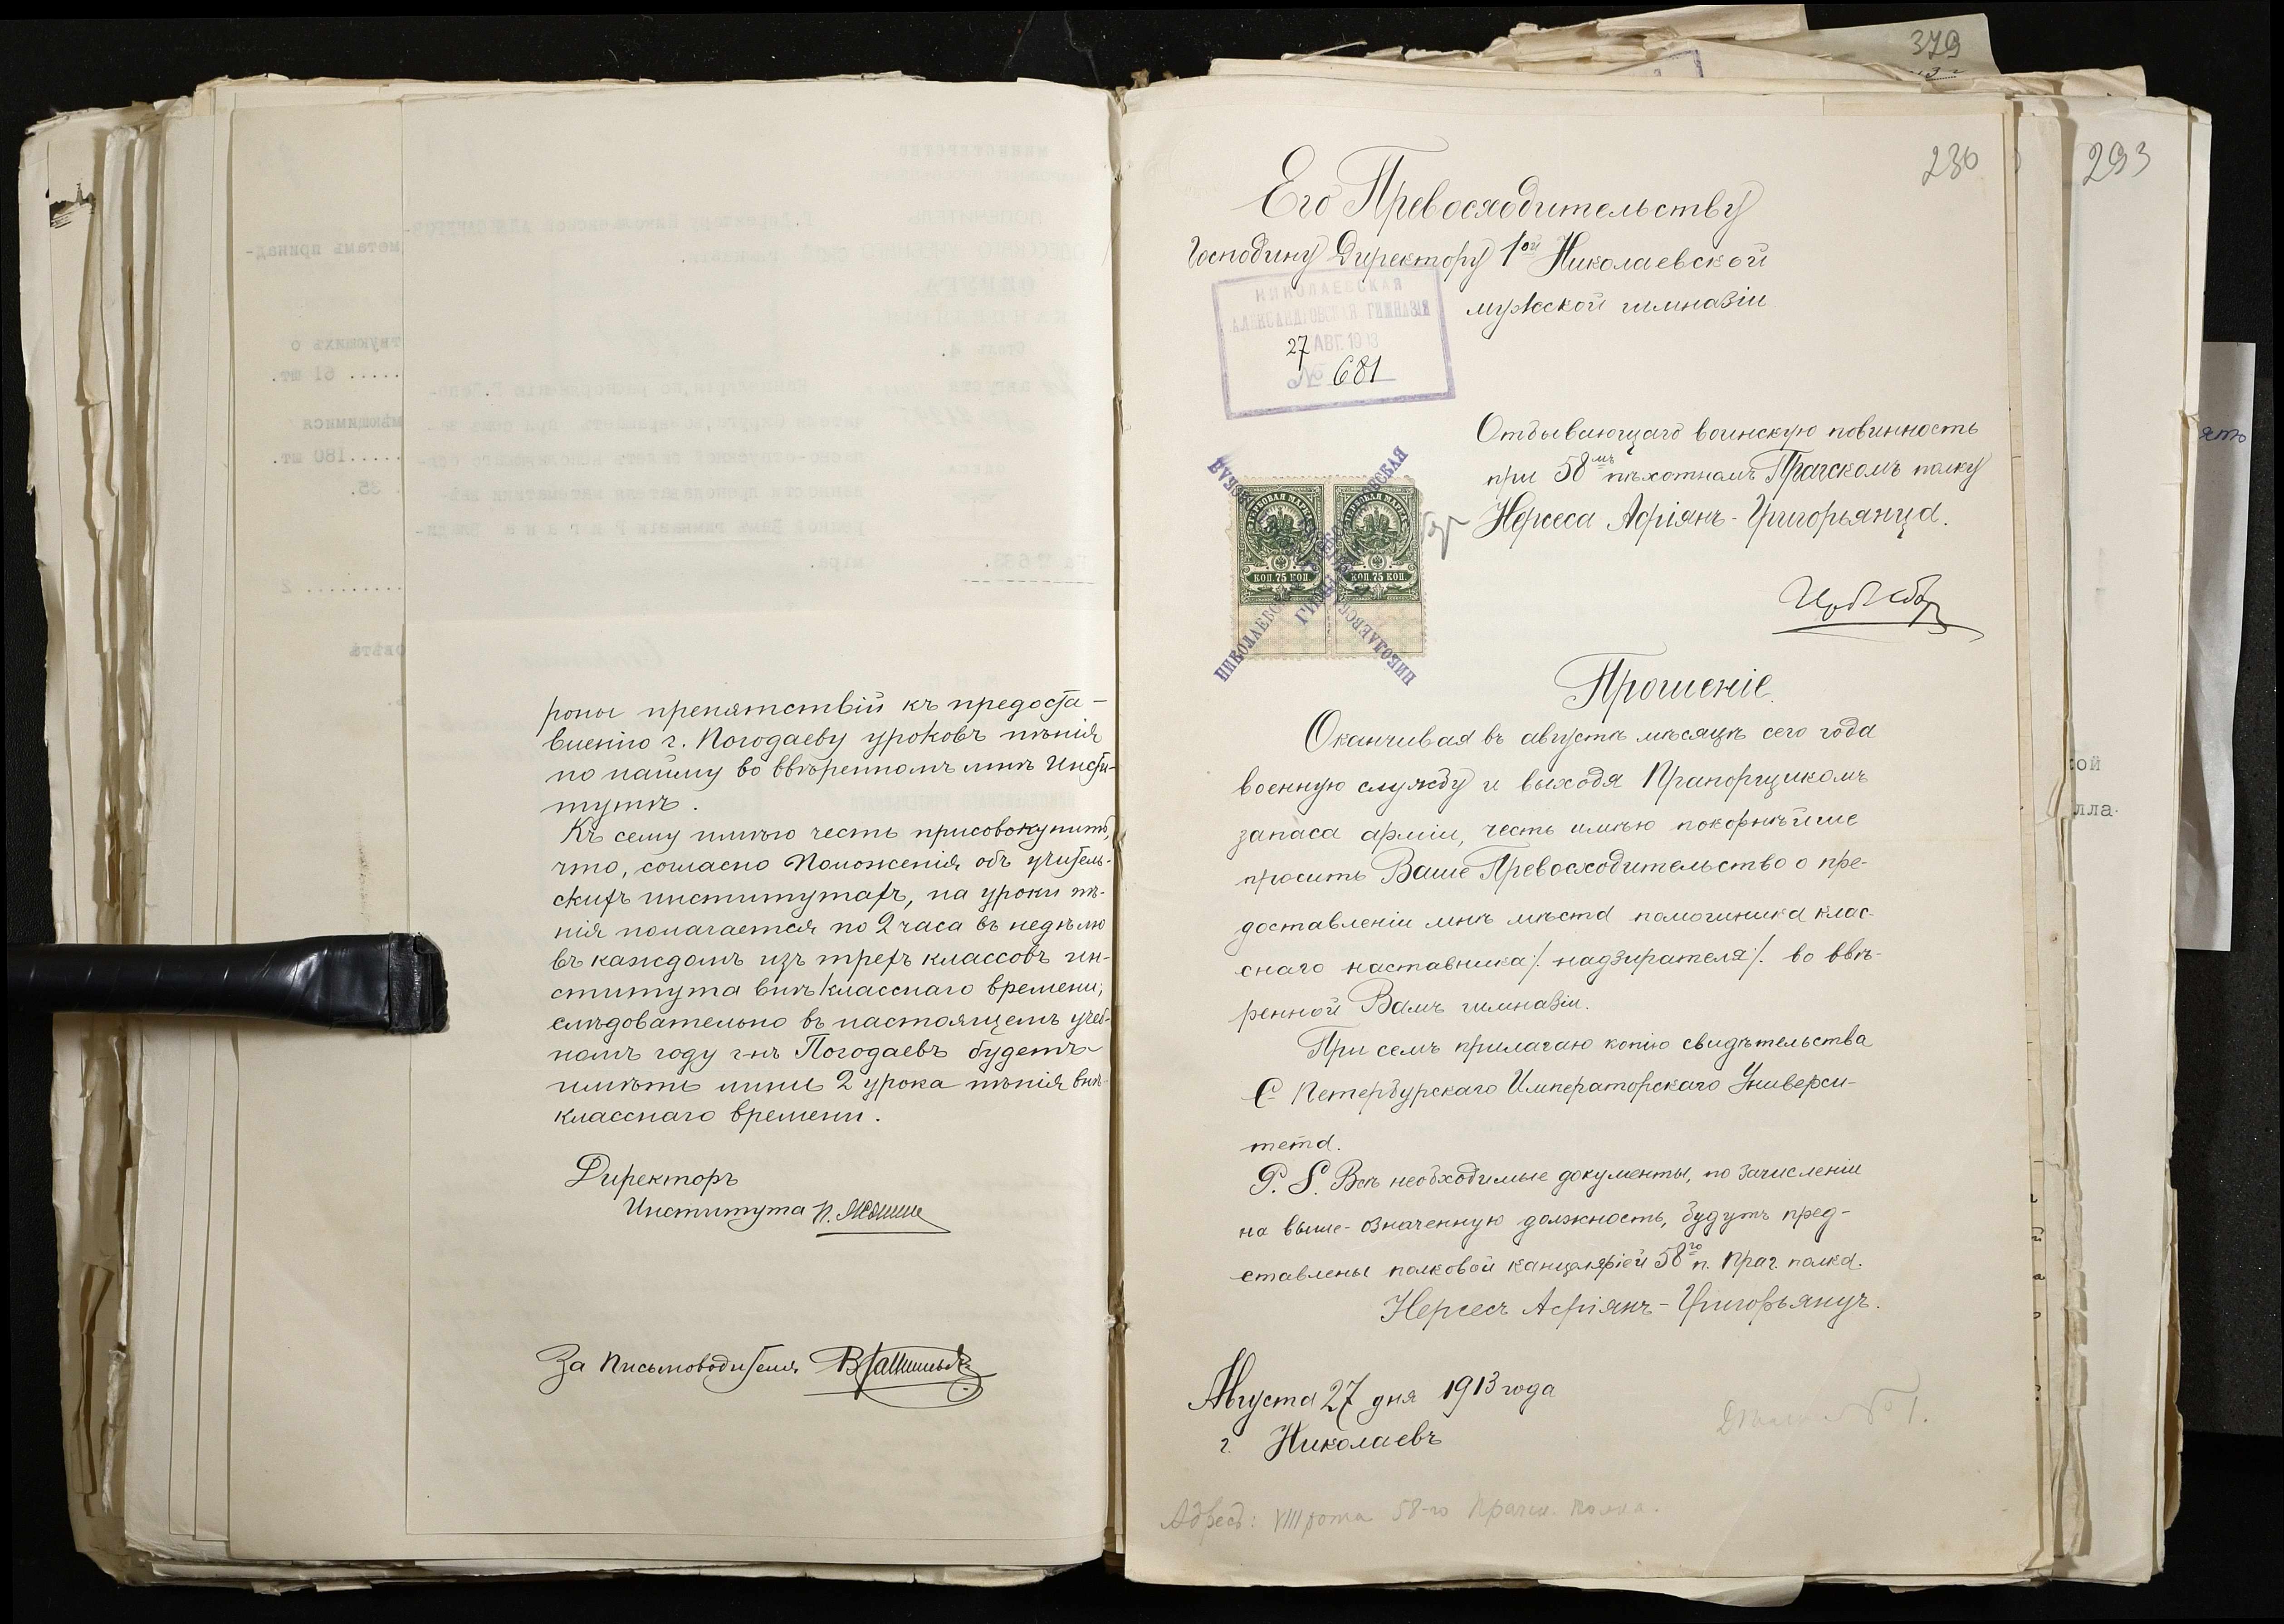 роны препятствій къ предоста-
вленію г. Погодаеву уроковъ пѣнія
по найму во ввѣренномъ мнѣ Инсти-
тутѣ.
Къ сему имѣю честь присовокупить,
что, согласно Положенія объ учитель-
скихъ институтахъ, на уроки пѣ-
нія полагается по 2 часа въ недѣлю
въ каждомъ изъ трехъ классовъ ин-
ститута внѣ класснаго времени;
слѣдовательно въ настоящемъ учеб-
номъ году г-нъ Погодаевъ будетъ
имѣть лишь 2 урока пѣнія внѣ-
класснаго времени.
Директоръ
Института
За Письмоводителя
379
230
293
Его Превосходительству
Господину Директору 1ой Николаевской
мужской гимназіи
НИКОЛАЕВСКАЯ
АЛЕКСАНДРОВСКАЯ ГИМНАЗІЯ
27 АВГ. 1913
№ 681
Отбывающаго воинскую повинность
при 58мъ пѣхотномъ Прагскомъ полку
Нерсеса Асріянъ-Григорьянца.
КОП. 75 КОП. КОП. 75 КОП.
Прошеніе.
Оканчивая въ августѣ мѣсяцѣ сего года
военную службу и выходя Прапорщикомъ
запаса арміи, честь имѣю покорнѣйше
просить Ваше Превосходительство о пре-
доставленіи мнѣ мѣста помощника клас-
снаго наставника /. надзирателя /. во ввѣ-
ренной Вамъ гимназіи.
При семъ прилагаю копію свидѣтельства
С. Петербурскаго Императорскаго Универси-
тета.
P. S. Всѣ необходимые документы, по зачисленіи
на выше-означенную должность, будутъ пред-
ставлены полковой канцеляріей 58го п. Праг. полка.
Нерсесъ Асріянъ-Григорьянцъ.
Августа 27 дня 1913 года
г. Николаевъ
№ 1.
Адресъ: VIII рота 58-го Пражск. полка.